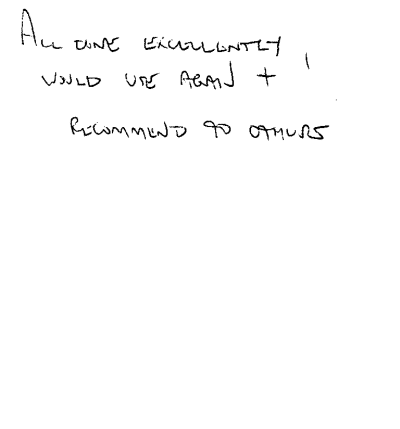 ALL DONE EXCELLENTLY,
WOULD USE AGAIN +
RECOMMEND TO OTHERS